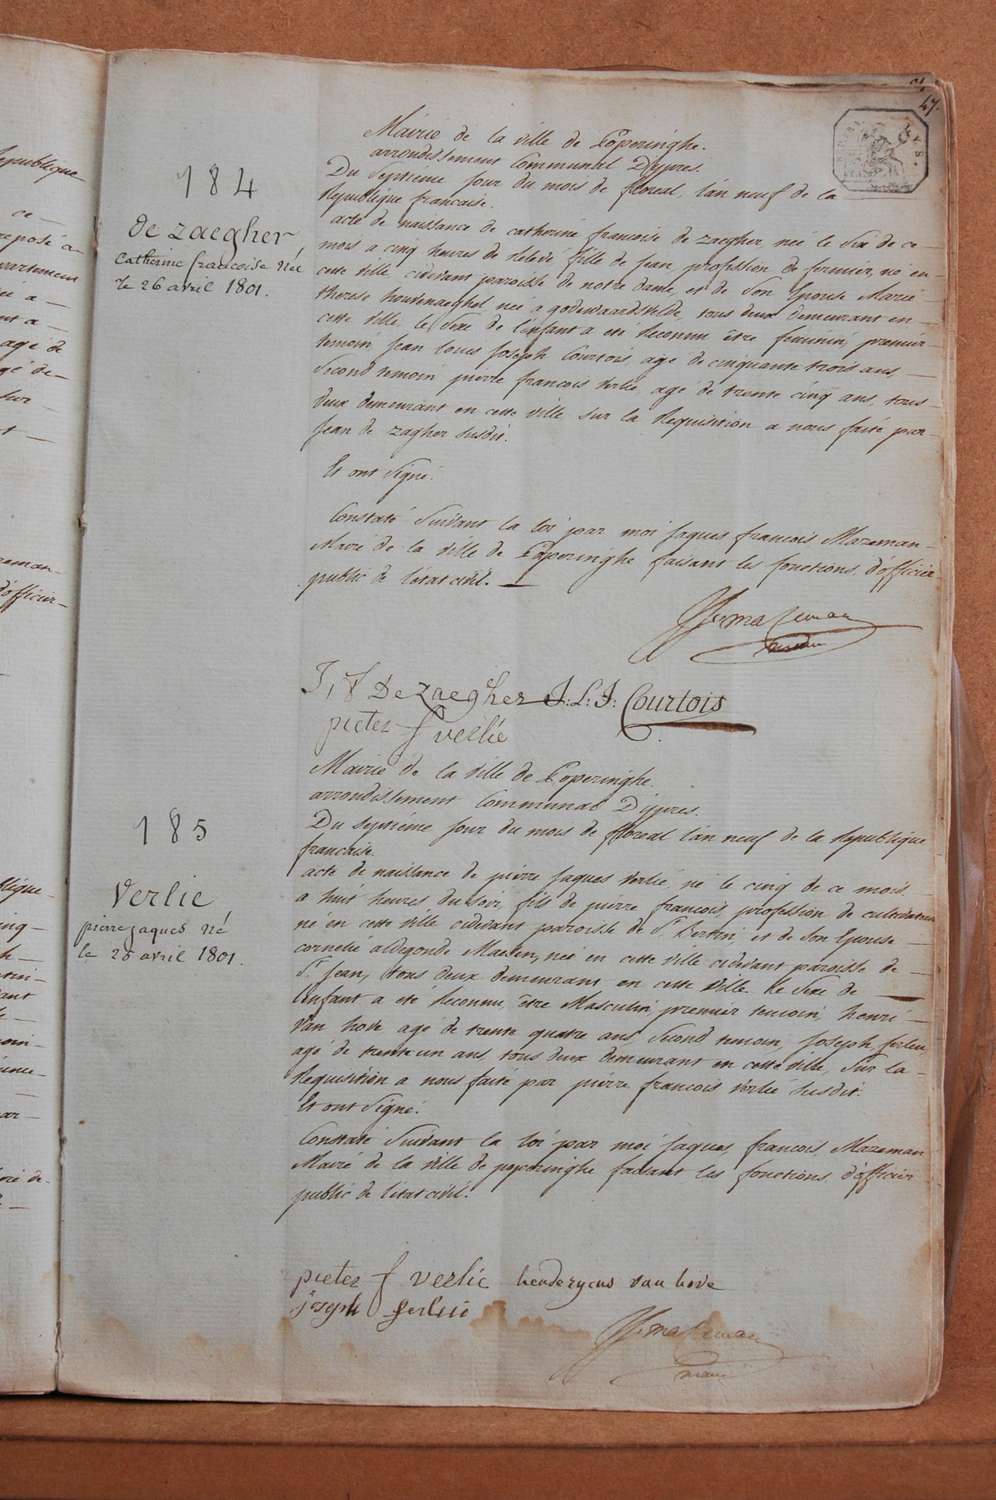 47.
184
de Zaegher,
Catherine francoise Née
le 26 avril 1801.
Mairie de la ville de Poperinghe.
arrondissement Communal D'ypres.
Du Septiéme Jour du mois de floreal, l'an neuf de la
Republique francaise.
acte de naissance de catherine francoise de Zaegher, née le Six de ce-
mois a cinq heures de relevé fille de Jean, profession de fermier, né en-
cette ville cidevant paroisse de notre dame, et de Son Epouse Marie-
therese houvenaeghel née a godewaersvelde, tous deux demeurant en-
cette ville, le Sexe de l'enfant a été Reconnu être feminin, premier-
temoin Jean Louis Joseph Courtois, agé de cinquante trois ans,-
Second temoin pierre francois Verlie, agé de trente cinq ans, tous-
deux demeurant en cette ville sur la Requisition a nous faite par-
Jean de Zagher Susdit.
Et ont Signé.
Constaté Suivant la loi par moi Jaques francois Mazeman-
Maire de la ville de Poperinghe faisant les fonctions d'officier
public de l'état civil.
J,F De Zaegher J:L:J: Courtois
pieter f verlie
185
Verlie
pierre jaques Né
le 25 avril 1801.
Mairie de la ville de Poperinghe
arrondissement Communal D'ypres.
Du Septiéme Jour du mois de floreal l'an neuf de la Republique
francaise.
acte de naissance de pierre Jaques Verlié, né le cinq de ce mois-
a huit heures du soir, fils de pierre francois, profession de cultivateur
né en cette ville cidevant paroisse de St Bertin, et de Son Epouse-
cornelie aldegonde Maerten, née en cette ville cidevant paroisse de-
St Jean, tous deux demeurant en cette Ville. le Sexe de-
l'enfant a été Reconnu être Masculin, premier temoin henri-
Van hove agé de trente quatre ans, Second temoin, Joseph ferlin
agé de trente un ans, tous deux demeurant en cette ville, Sur la-
Requisition a nous faite par pierre francois Verlié Susdit.
Et ont Signé.
Constaté Suivant la loi par moi Jaques francois Mazeman
Maire de la ville de poperinghe faisant les fonctions d'officier
public de l'état civil.
pieter f verlie henderycus van hove
Joseph